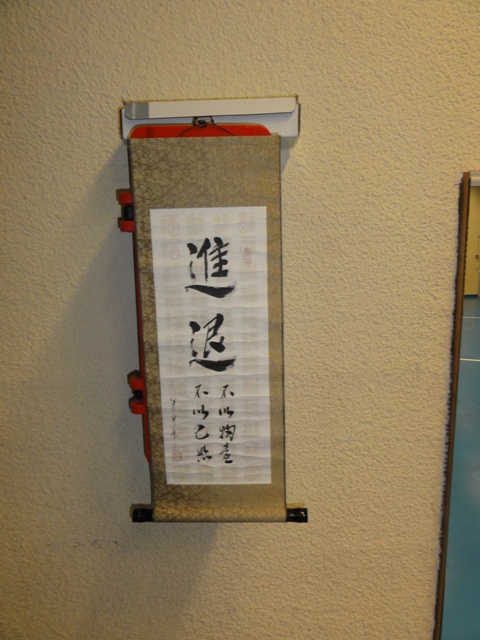 進退
不以物喜
不以己悲